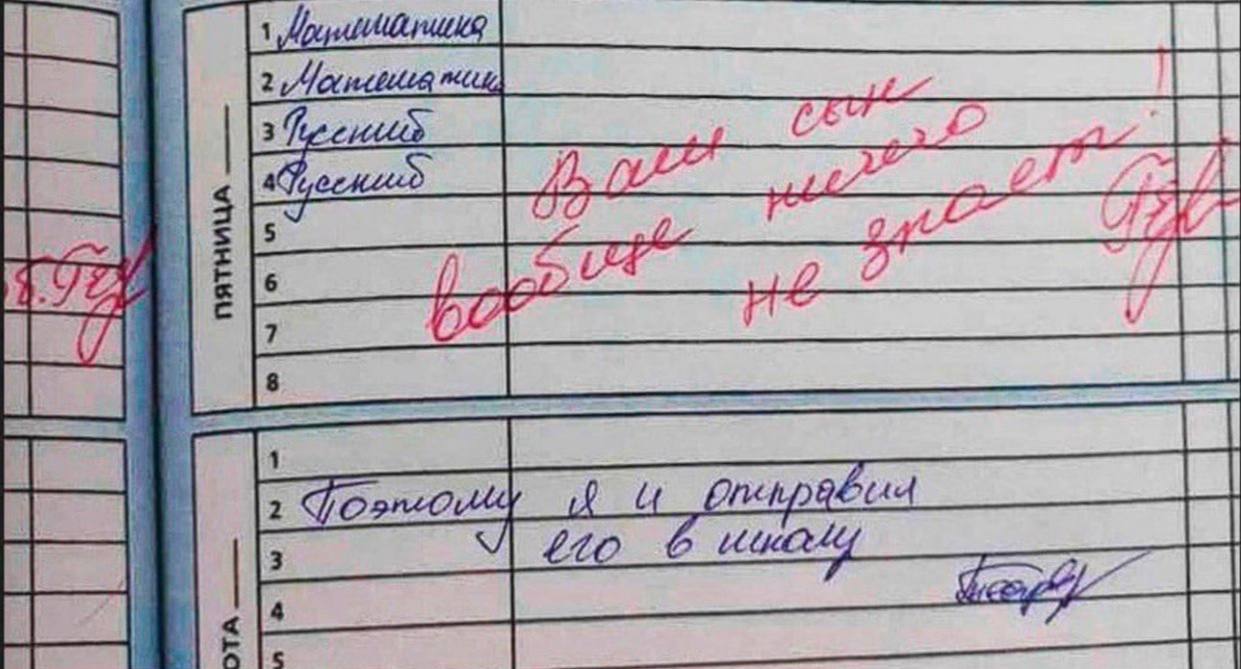 ПЯТНИЦА
1 Математика
2 Математика
3 Русский
4 Русский
5
6
7
8
Ваш сын
вообще ничего
не знает!
1
2 Поэтому я и отправил
3 его в школу
4
5
ОТА